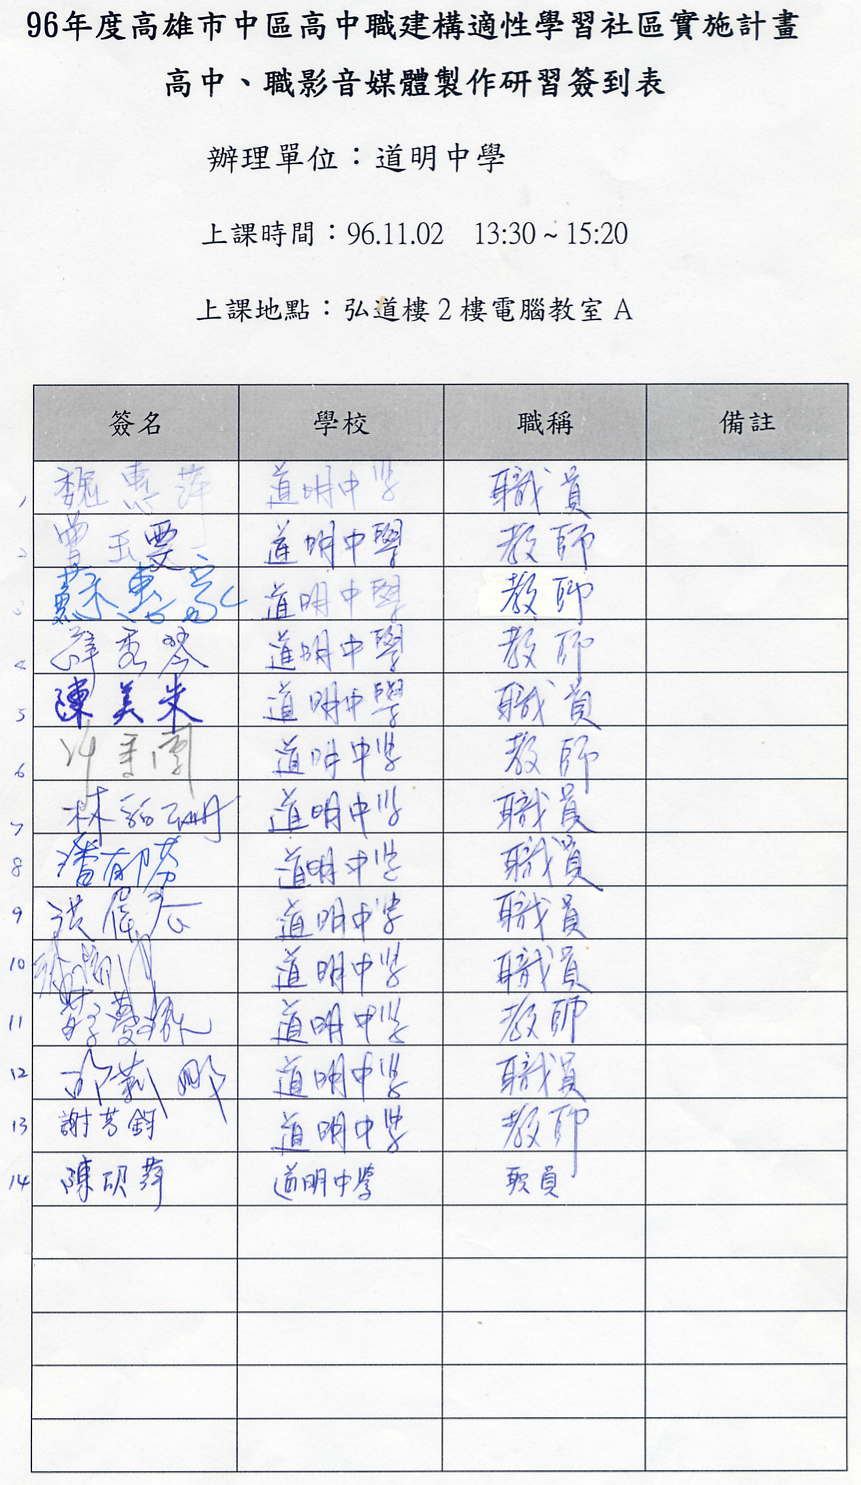 96年度高雄市中區高中職建構適性學習社區實施計畫
高中、職影音媒體製作研習簽到表
辦理單位：道明中學
上課時間：96.11.02 13:30 ~ 15:20
上課地點：弘道樓 2 樓電腦教室 A
簽名 學校 職稱 備註
1 魏惠萍 道明中学 職員
2 曾玉雯 道明中學 教師
3 蘇惠 道明中學 教師
4 薛秀琴 道明中學 教師
5 陳美朱 道明中學 職員
6 道明中学 教師
7 林 道明中学 職員
8 潘郁芬 道明中学 職員
9 洪偉 道明中学 職員
10 道明中学 職員
11 道明中学 教師
12 莉 道明中学 職員
13 謝芳鈞 道明中学 教師
14 陳萍 道明中學 職員